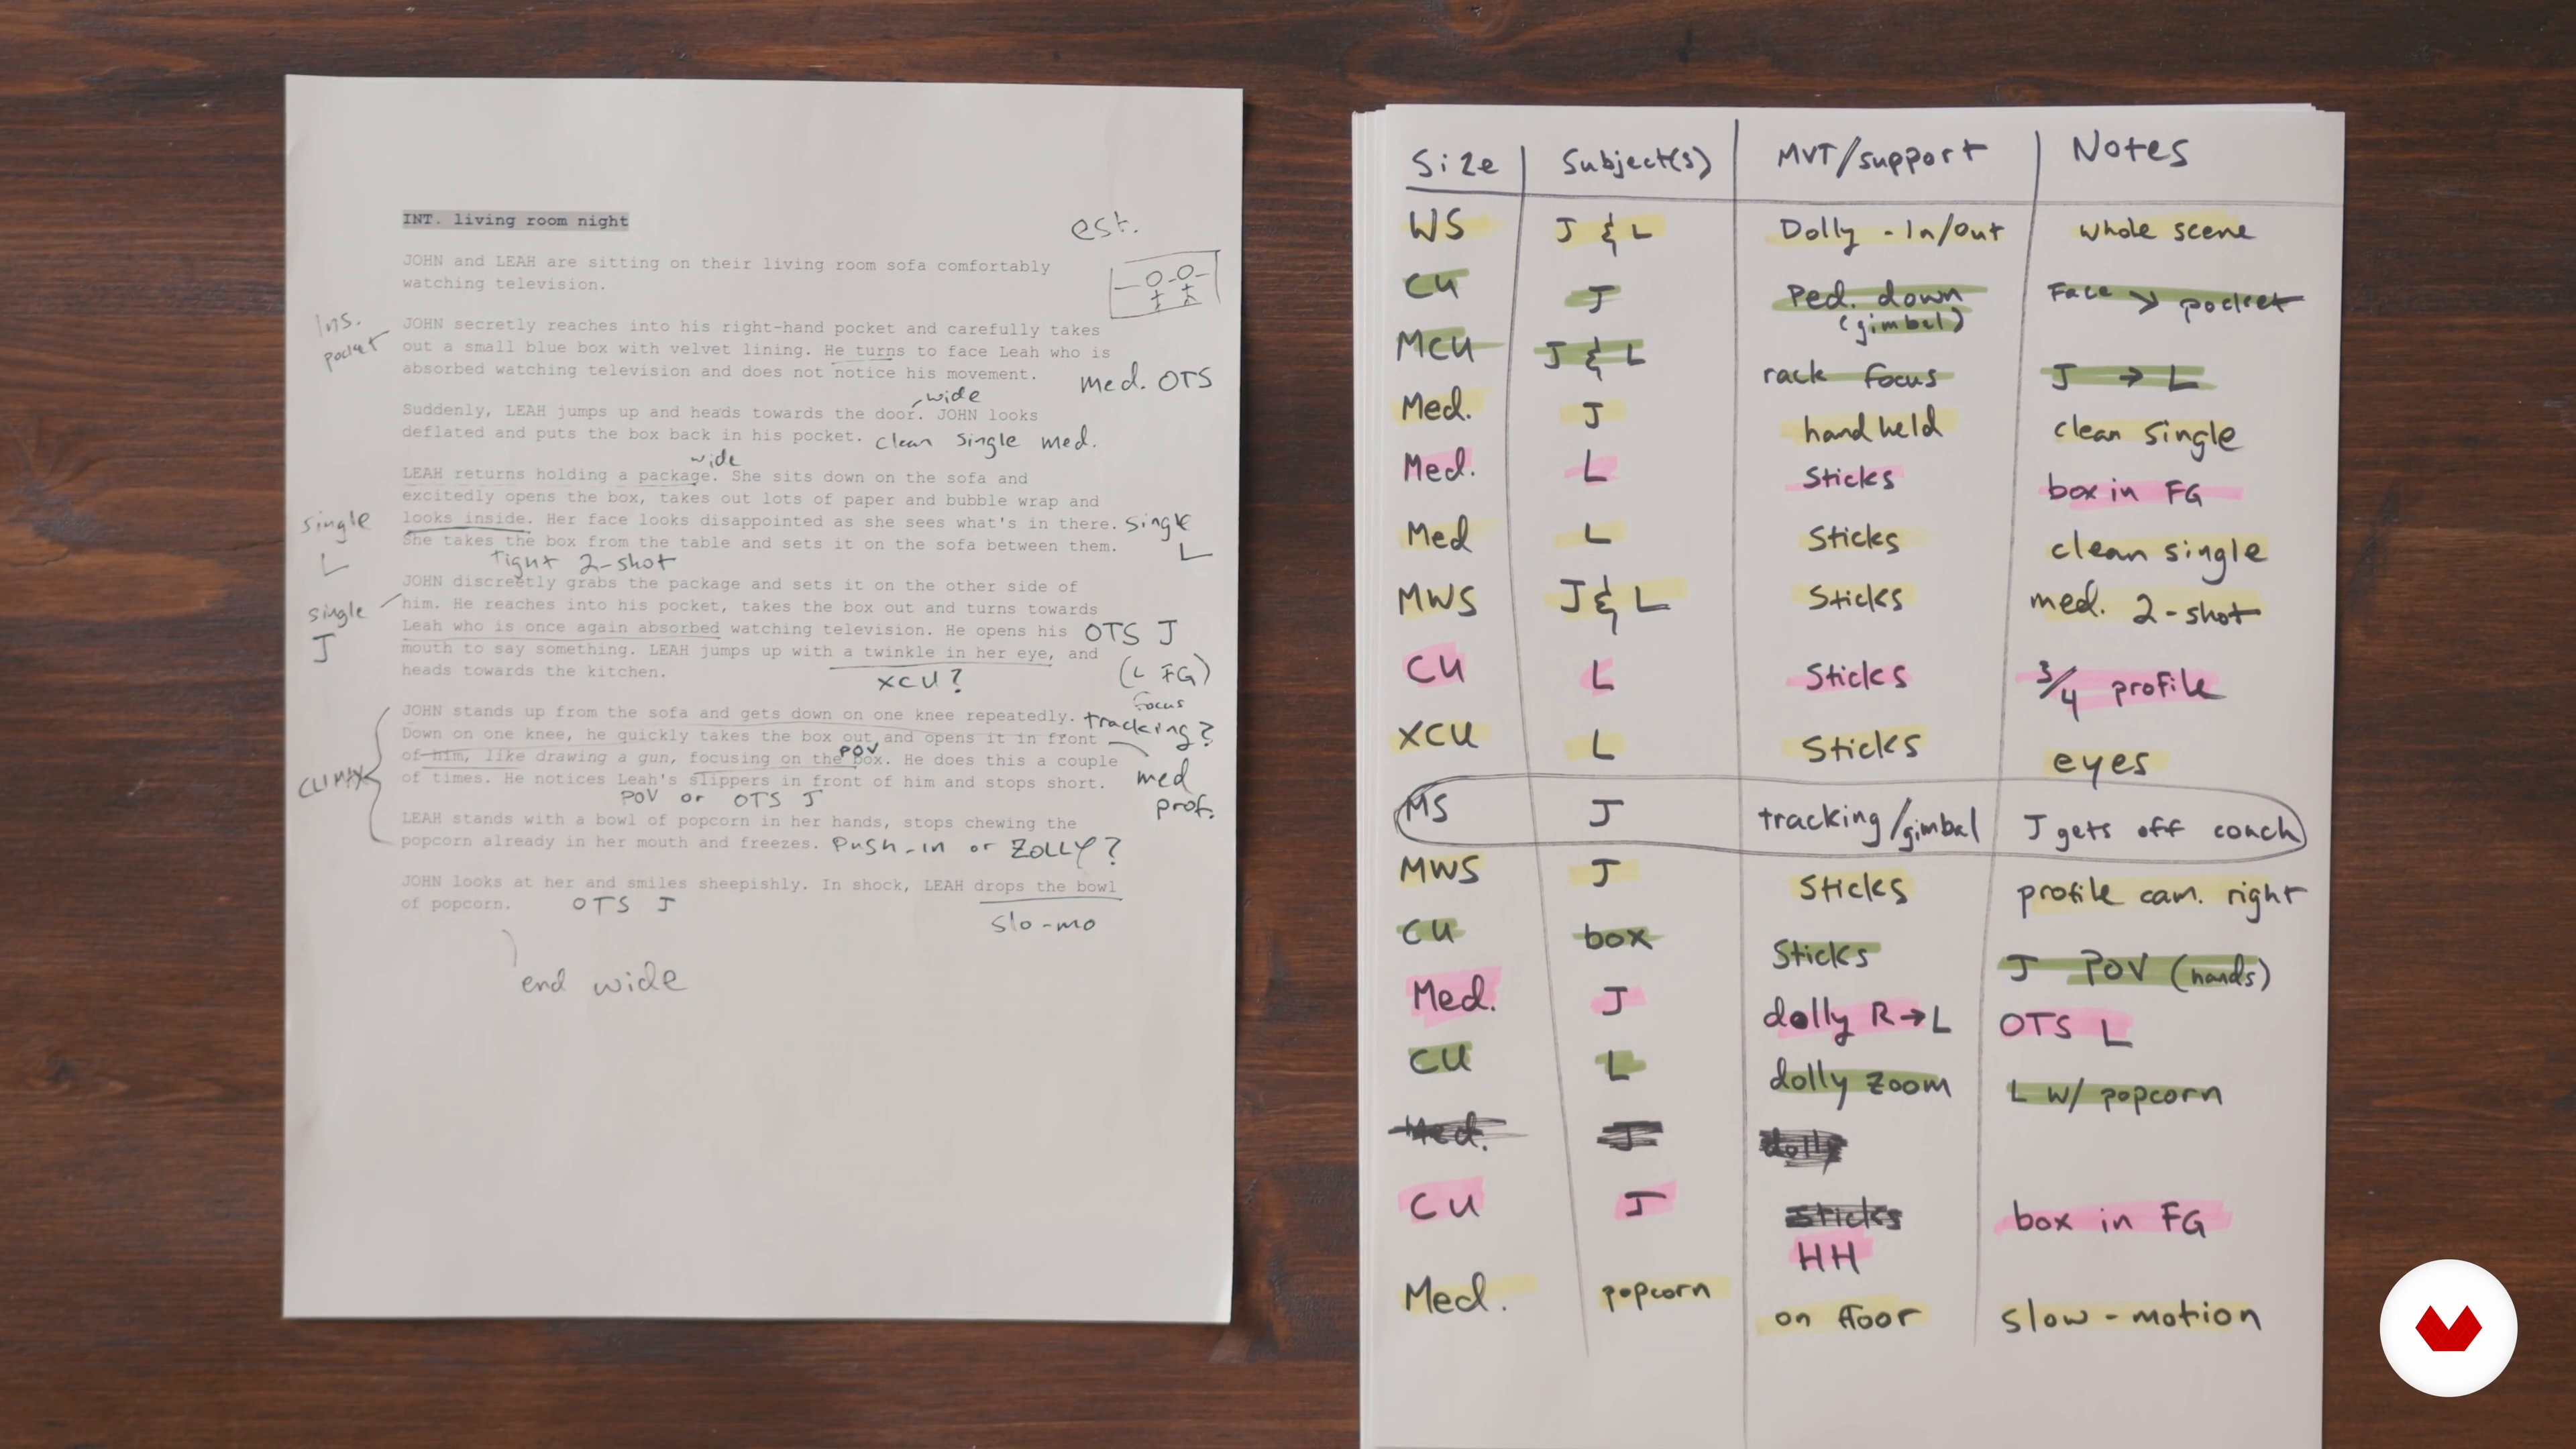 INT. living room night
est.
JOHN and LEAH are sitting on their living room sofa comfortably
watching television.
Ins.
pocket
JOHN secretly reaches into his right-hand pocket and carefully takes
out a small blue box with velvet lining. He turns to face Leah who is
absorbed watching television and does not notice his movement.
med. OTS
wide
Suddenly, LEAH jumps up and heads towards the door. JOHN looks
deflated and puts the box back in his pocket. clean single med.
wide
LEAH returns holding a package. She sits down on the sofa and
excitedly opens the box, takes out lots of paper and bubble wrap and
looks inside. Her face looks disappointed as she sees what's in there. single
L
single
L
She takes the box from the table and sets it on the sofa between them.
Tight 2-shot
JOHN discreetly grabs the package and sets it on the other side of
single
J
him. He reaches into his pocket, takes the box out and turns towards
Leah who is once again absorbed watching television. He opens his OTS J
mouth to say something. LEAH jumps up with a twinkle in her eye, and
(L FG)
heads towards the kitchen.
XCU?
focus
JOHN stands up from the sofa and gets down on one knee repeatedly. tracking?
Down on one knee, he quickly takes the box out and opens it in front
POV
of him, like drawing a gun, focusing on the box. He does this a couple
of times. He notices Leah's slippers in front of him and stops short.
med
prof.
CLIMAX
POV or OTS J
LEAH stands with a bowl of popcorn in her hands, stops chewing the
popcorn already in her mouth and freezes. Push-in or ZOLLY?
JOHN looks at her and smiles sheepishly. In shock, LEAH drops the bowl
of popcorn. OTS J
slo-mo
end wide
Size Subject(s) MVT/support Notes
WS J & L Dolly - In/Out whole scene
CU J Ped. down (gimbal) Face > pocket
MCU J & L rack focus J → L
Med. J handheld clean single
Med. L Sticks box in FG
Med L Sticks clean single
MWS J & L Sticks med. 2-shot
CU L Sticks 3/4 profile
XCU L Sticks eyes
MS J tracking/gimbal J gets off couch
MWS J Sticks profile cam. right
CU box Sticks J POV (hands)
Med. J dolly R→L OTS L
CU L dolly zoom L w/ popcorn
Med. J dolly
CU J Sticks box in FG
HH
Med. popcorn on floor slow-motion